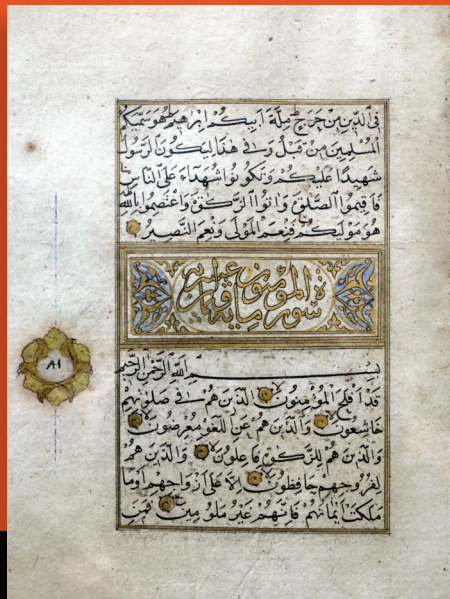 فِى الدِّينِ مِنْ حَرَجٍ مِلَّةَ اَبِيكُمْ اِبْرٰهِيمَ هُوَ سَمّٰيكُمُ
الْمُسْلِمِينَ مِنْ قَبْلُ وَفِى هٰذَا لِيَكُونَ الرَّسُولُ
شَهِيدًا عَلَيْكُمْ وَتَكُونُوا شُهَدَاءَ عَلَى النَّاسِ
فَاَقِيمُوا الصَّلٰوةَ وَاٰتُوا الزَّكٰوةَ وَاعْتَصِمُوا بِاللّٰهِ
هُوَ مَوْلٰيكُمْ فَنِعْمَ الْمَوْلٰى وَنِعْمَ النَّصِيرُ
سورة المؤمنون
ماية
بِسْمِ اللّٰهِ الرَّحْمٰنِ الرَّحِيمِ
قَدْ اَفْلَحَ الْمُؤْمِنُونَ الَّذِينَ هُمْ فِى صَلَوتِهِمْ
خَاشِعُونَ وَالَّذِينَ هُمْ عَنِ اللَّغْوِ مُعْرِضُونَ
وَالَّذِينَ هُمْ لِلزَّكٰوةِ فَاعِلُونَ وَالَّذِينَ هُمْ
لِفُرُوجِهِمْ حَافِظُونَ اِلَّا عَلٰى اَزْوَاجِهِمْ اَوْ مَا
مَلَكَتْ اَيْمَانُهُمْ فَاِنَّهُمْ غَيْرُ مَلُومِينَ فَمَنِ
٨١